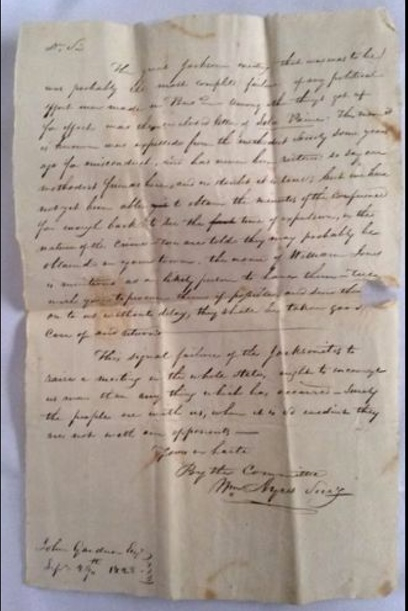 Dr Sir
The great Jackson meeting that was to be
was probably the most complete failure of any political
effort ever made in Among the things got up
for effect was the enclosed letter of John The man
is known was expelled from the methodist Society some years
ago for misconduct, and has never been restored so say our
methodist friends here, and no doubt it is true; but we have
not yet been able to obtain the minutes of the Conference
far enough back to see the time of expulsion, or the
nature of the Crime we are told they may probably be
obtained in your town. the name of William Jones
is mentioned as a likely person to have them
you to procure them if possible, and send them
on to us without delay, they shall be taken good
care of and returned
This signal failure of the Jacksonites to
raise a meeting in the whole state, ought to encourage
us more than any thing which has occurred - Surely
the people are with us, when it is so evident they
are not with our opponents
Yours in haste
By the Committee
Wm Ayres Secy
John Gardner Esq
Sepr 1828